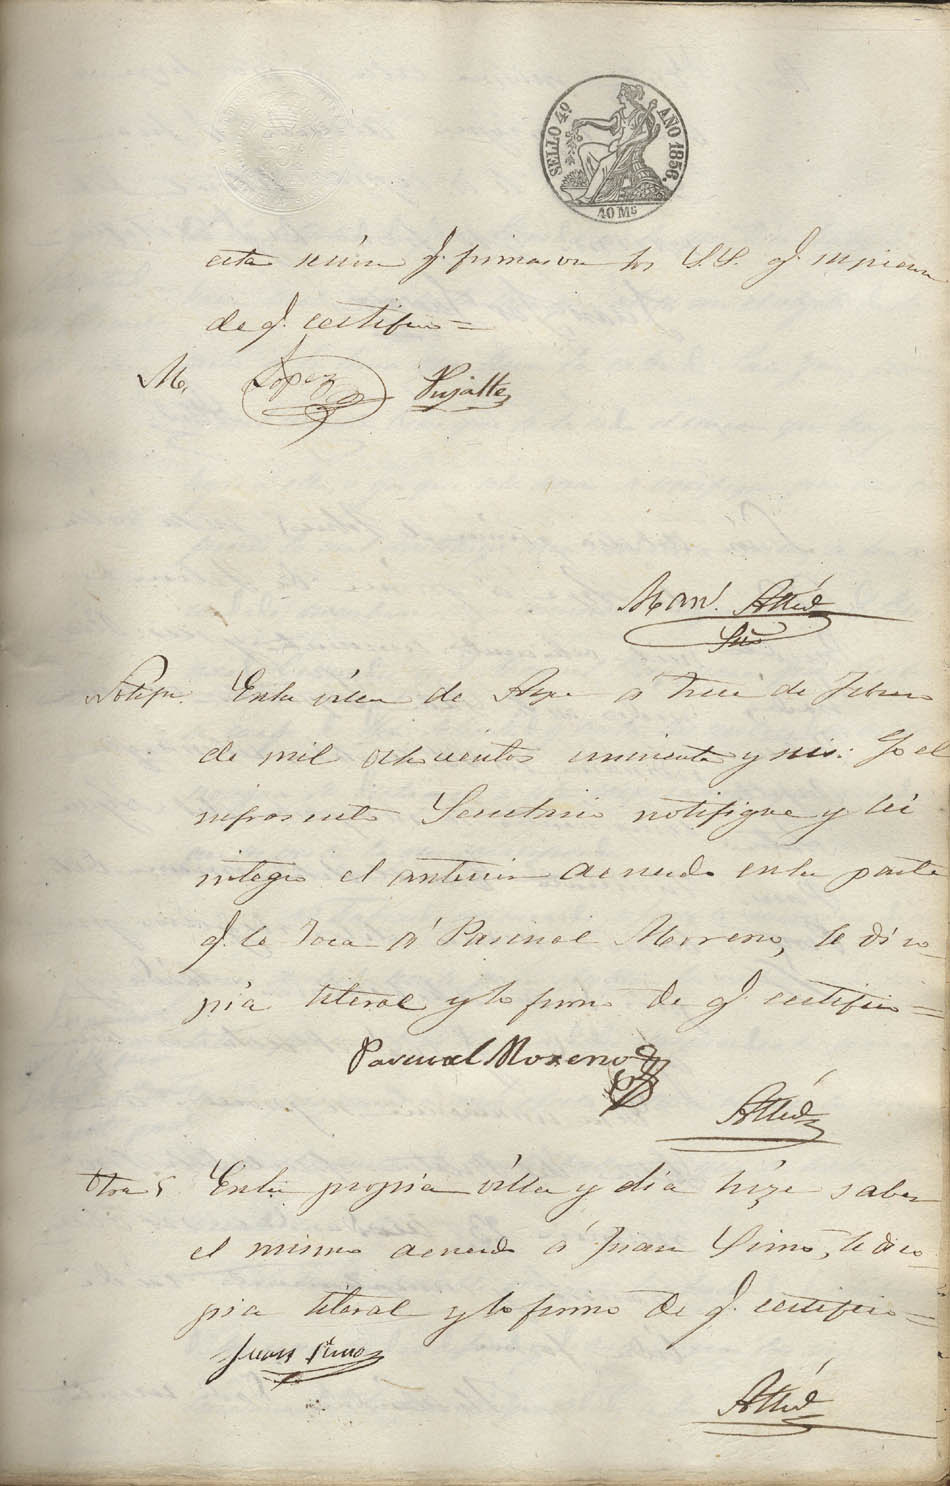 SELLO 4º AÑO 1856.
40 Ms
esta sesion q. firmaron los S.S. q. supieron
de q. certifico =
M. Lopez Pujalte
Man.l
Srio
Notif.n En la villa de Aspe á trece de Febrero
de mil ochocientos cincuenta y seis: Yo el
infrascrito Secretario notifique y lei
integro el anterior acuerdo en la parte
q. le toca á Pascual Moreno, le di co-
pia literal y lo firmo de q. certifico =
Pascual Moreno
Otra En la propia villa y dia hize saber
el mismo acuerdo á Juan Simo, le di co-
pia literal y lo firmo de q. certifico =
Juan Simo